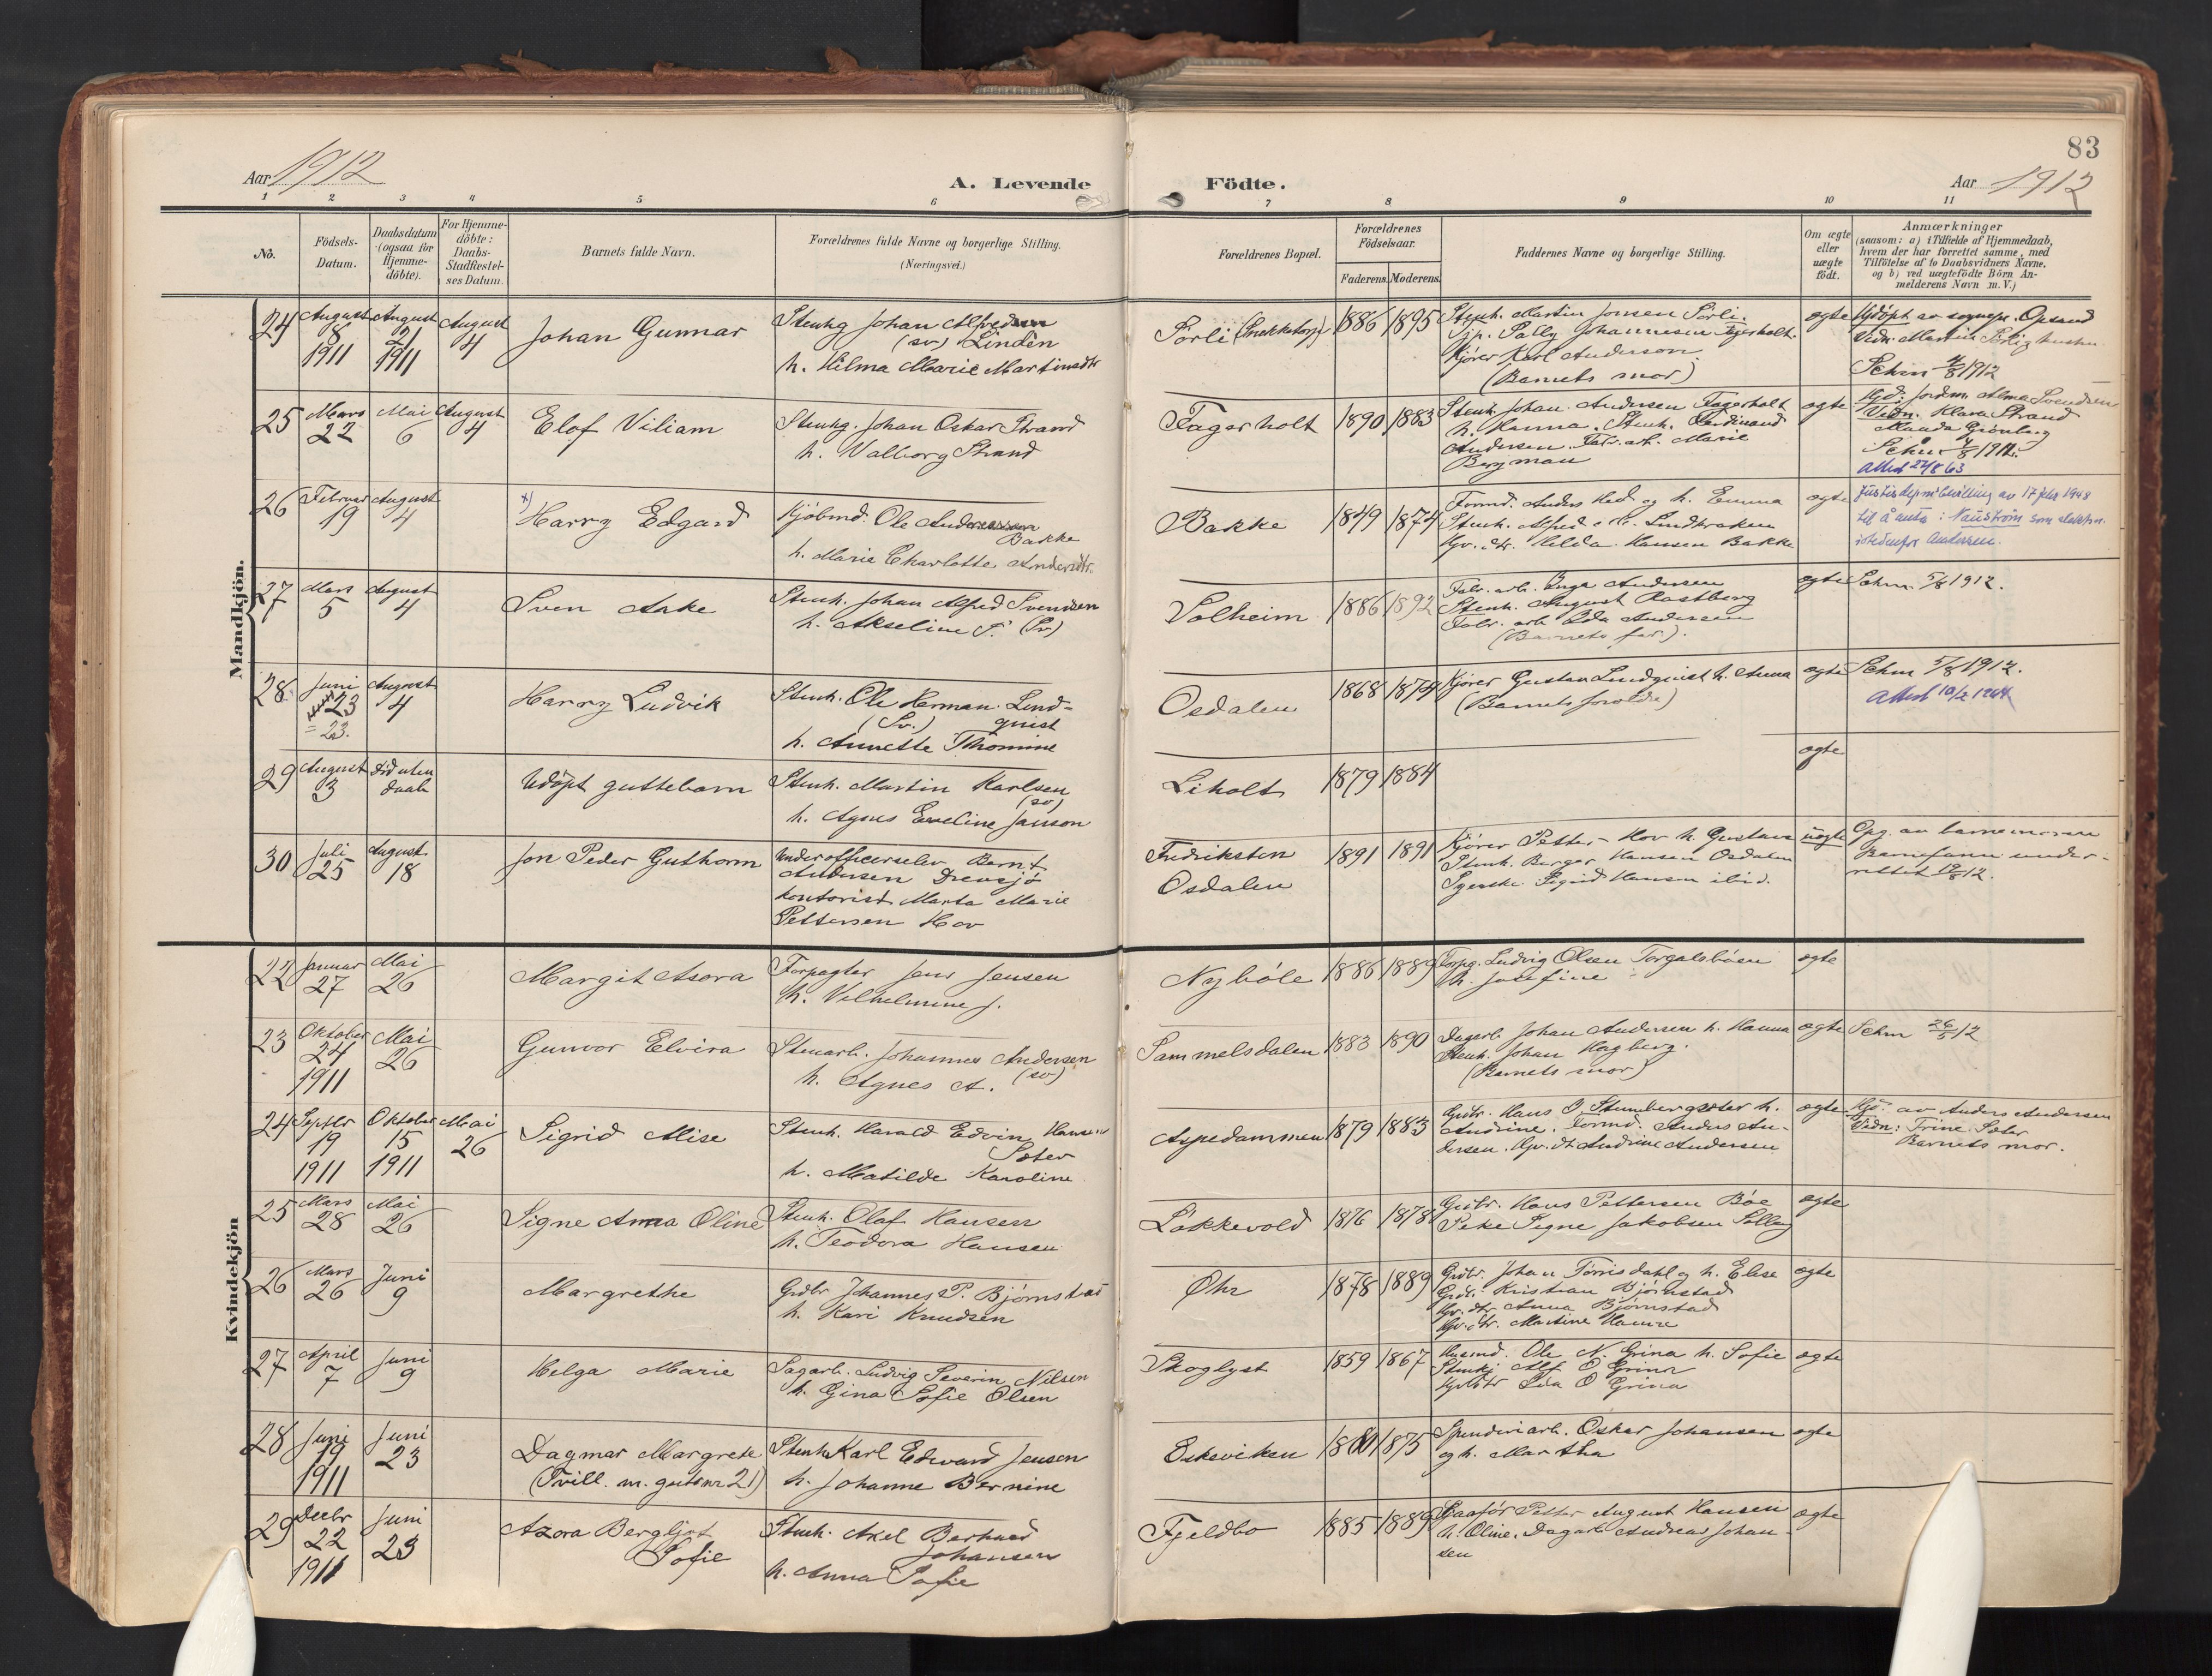 83
Aar 1912
A. Levende Födte.
Aar 1912
1 2 3 4 5 6 7 8 9 10 11
No.
Födsels-
Datum.
Daabsdatum
(ogsaa for
Hjemme-
döbte).
For Hjemme-
döbte:
Daabs-
Stadfæstel-
ses Datum.
Barnets fulde Navn.
Forældrenes fulde Navne og borgerlige Stilling.
(Næringsvei.)
Forældrenes Bopæl.
Forældrenes
Födselsaar.
Faderens. Moderens.
Faddernes Navne og borgerlige Stilling.
Om ægte
eller
uægte
födt.
Anmærkninger
(saasom: a) i Tilfælde af Hjemmedaab,
hvem der har forrettet samme, med
Tilföielse af to Daabsvidners Navne,
og b) ved uægtefödte Börn An-
melderens Navn m. V.)
Mandkjön.
24
August
8
1911
August
21
1911
August
4
Johan Gunnar
Stenhg Johan Alfredsen
(sv) Lindèn
h. Hilma Marie Martinsdtr
Sørli
1886 1895
Stenh. Martin Jonsen Sørli.
Tjp. Sally Johannesen Fagerholt.
Kjører Karl Anderson.
(Barnets mor)
ægte
Hjdöpt av sognepr. Opsand
Vidn. Martin Sørli g hustru
Schm 4/8 1912
25
Mars
22
Mai
6
August
4
Elof Viliam
Stenhg. Johan Oskar Strand
h. Valborg Strand
Fagerholt
1890 1883
Stenh. Johan Andersen Fagerholt
h. Hanna. Stenh. Ferdinand
Andersen. Fabr. arb. Marie
Bergman
ægte
Hjd: Jordm. Alma Svendsen
Vidn. Klara Strand
Manda Grönberg
Schm 4/8 1912.
Attest 27/8 63
26
Februar
19
August
4
x)
Harry Edgard
Kjöbmd. Ole Andreassen
Bakke
h. Marie Charlotte Andersdtr.
Bakke
1849 1874
Formd. Anders Hed og h. Emma
Stenh. Alfred
Gv. dtr. Hilda Hansen Bakke
ægte
Justisdep.s bevilling av 17 febr 1948
til å anta: Nauström som slektsn.
istedenfor Andersen.
27
Mars
5
August
4
Sven Aake
Stenh. Johan Alfred Svendsen
h. Akseline S. (Sv)
Solheim
1886 1892
Fabr. arb. Inga Andersen
Stenh. August Rastberg
Fabr. arb. Ida Andersen
(Barnets far).
ægte
Schm. 5/8 1912.
28
Juni
23
= 23.
August
4
Harry Ludvik
Stenh. Ole Herman Lind-
(Sv.) quist
h. Annette Thomine
Osdalen
1868 1874
Kjører Gustav Lundquist h. Anna
(Barnets forældre)
ægte
Schm 5/8 1912.
29
August
3
Död uten
daab
Udöpt guttebarn
Stenh. Martin Karlsen
(sv)
h. Agnes Eveline Janson
Liholt
1879 1884
ægte
30
Juli
25
August
18
Jon Peder Guthorm
Underofficerselev Bernt
Andersen Drevsjö
kontorist Marta Marie
Pettersen Hov
Fredriksten
Osdalen
1891 1891
Kjører Petter Hov h. Gustava
Stenh. Berger Hansen Osdalen
Syerske Sigrid Hansen ibid.
uægte
Opg. av barnemoren
Barnefaren under-
rettet 19/8 12.
Kvindekjön
22
Januar
27
Mai
26
Margit Asora
Forpagter Jens Jensen
h. Vilhelmine J.
Nyböle
1886 1889
Forpg. Ludvig Olsen Torgalsbøen
h. Josefine
ægte
23
Oktober
24
1911
Mai
26
Gunvor Elvira
Stenarb. Johannes Andersen
h. Agnes A. (sv)
Sammelsdalen
1883 1890
Dagarb Johan Andersen h. Hanna
Stenh. Johan Hagberg.
(Barnets mor)
ægte
Schm 26/5 12
24
Septbr
19
1911
Oktober
15
1911
Mai
26
Sigrid Alise
Stenh. Harald Edvin Hansen
Sæter
h. Matilde Karoline
Aspedammen
1879 1883
Grdbr. Hans O. Stumbergsæter h.
Andrine. Formd. Anders An-
dersen. Gv. dt Andrine Andersen
ægte
Hjd. av Anders Andersen
Vidn: Trine Sæter
Barnets mor.
25
Mars
28
Mai
26
Signe Anna Oline
Stenh. Olaf Hansen
h. Teodora Hansen
Løkkevold
1876 1878
Grdbr. Hans Pettersen Bøe
Pike Signe Jakobsen
ægte
26
Mars
26
Juni
9
Margrethe
Grdbr Johannes P. Bjørnstad
h. Kari Knudsen
Øhr
1878 1889
Grdbr. Johan Torrisdahl og h. Elise
Grdbr. Kristian Bjørnstad
Gv. dtr. Anna Bjørnstad
Gv. dtr. Martine
ægte
27
April
7
Juni
9
Helga Marie
Sagarb. Ludvig Severin Nilsen
h. Gina Sofie Olsen
Skoglyst
1859 1867
Husmd. Ole N. Grina h. Sofie
Stenhg Alf O Grina
Ida O Grina
ægte
28
Juni
19
1911
Juni
23
Dagmar Margrete
(Tvill. m. gut nr 21)
Stenh Karl Edvard Jensen
h. Johanne Bernine
Eskeviken
1880 1875
Spinderiarb. Oskar Johansen
og h. Martha
ægte
29
Decbr
22
1911
Juni
23
Asora Bergljot
Sofie
Stenh. Axel Bernhard
Johansen
h. Anna Sofie
Fjeldbo
1885 1889
Petter August Hansen
h. Oline. Dagarb Andreas Johan-
sen
ægte